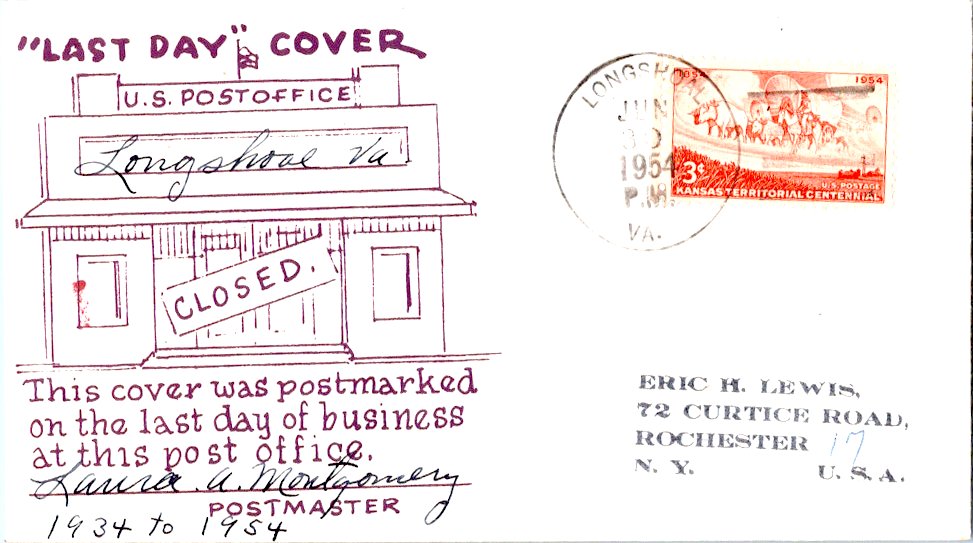 "LAST DAY" COVER
U.S. POSTOFFICE
Longshoal Va.
CLOSED.
This cover was postmarked
on the last day of business
at this post office.
Laura A. Montgomery
POSTMASTER
1934 to 1954
LONGSHOAL
JUN
30
1954
P.M.
VA.
1854 1954
3¢
U.S. POSTAGE
KANSAS TERRITORIAL CENTENNIAL
ERIC H. LEWIS,
72 CURTICE ROAD,
ROCHESTER 17
N. Y. U. S. A.